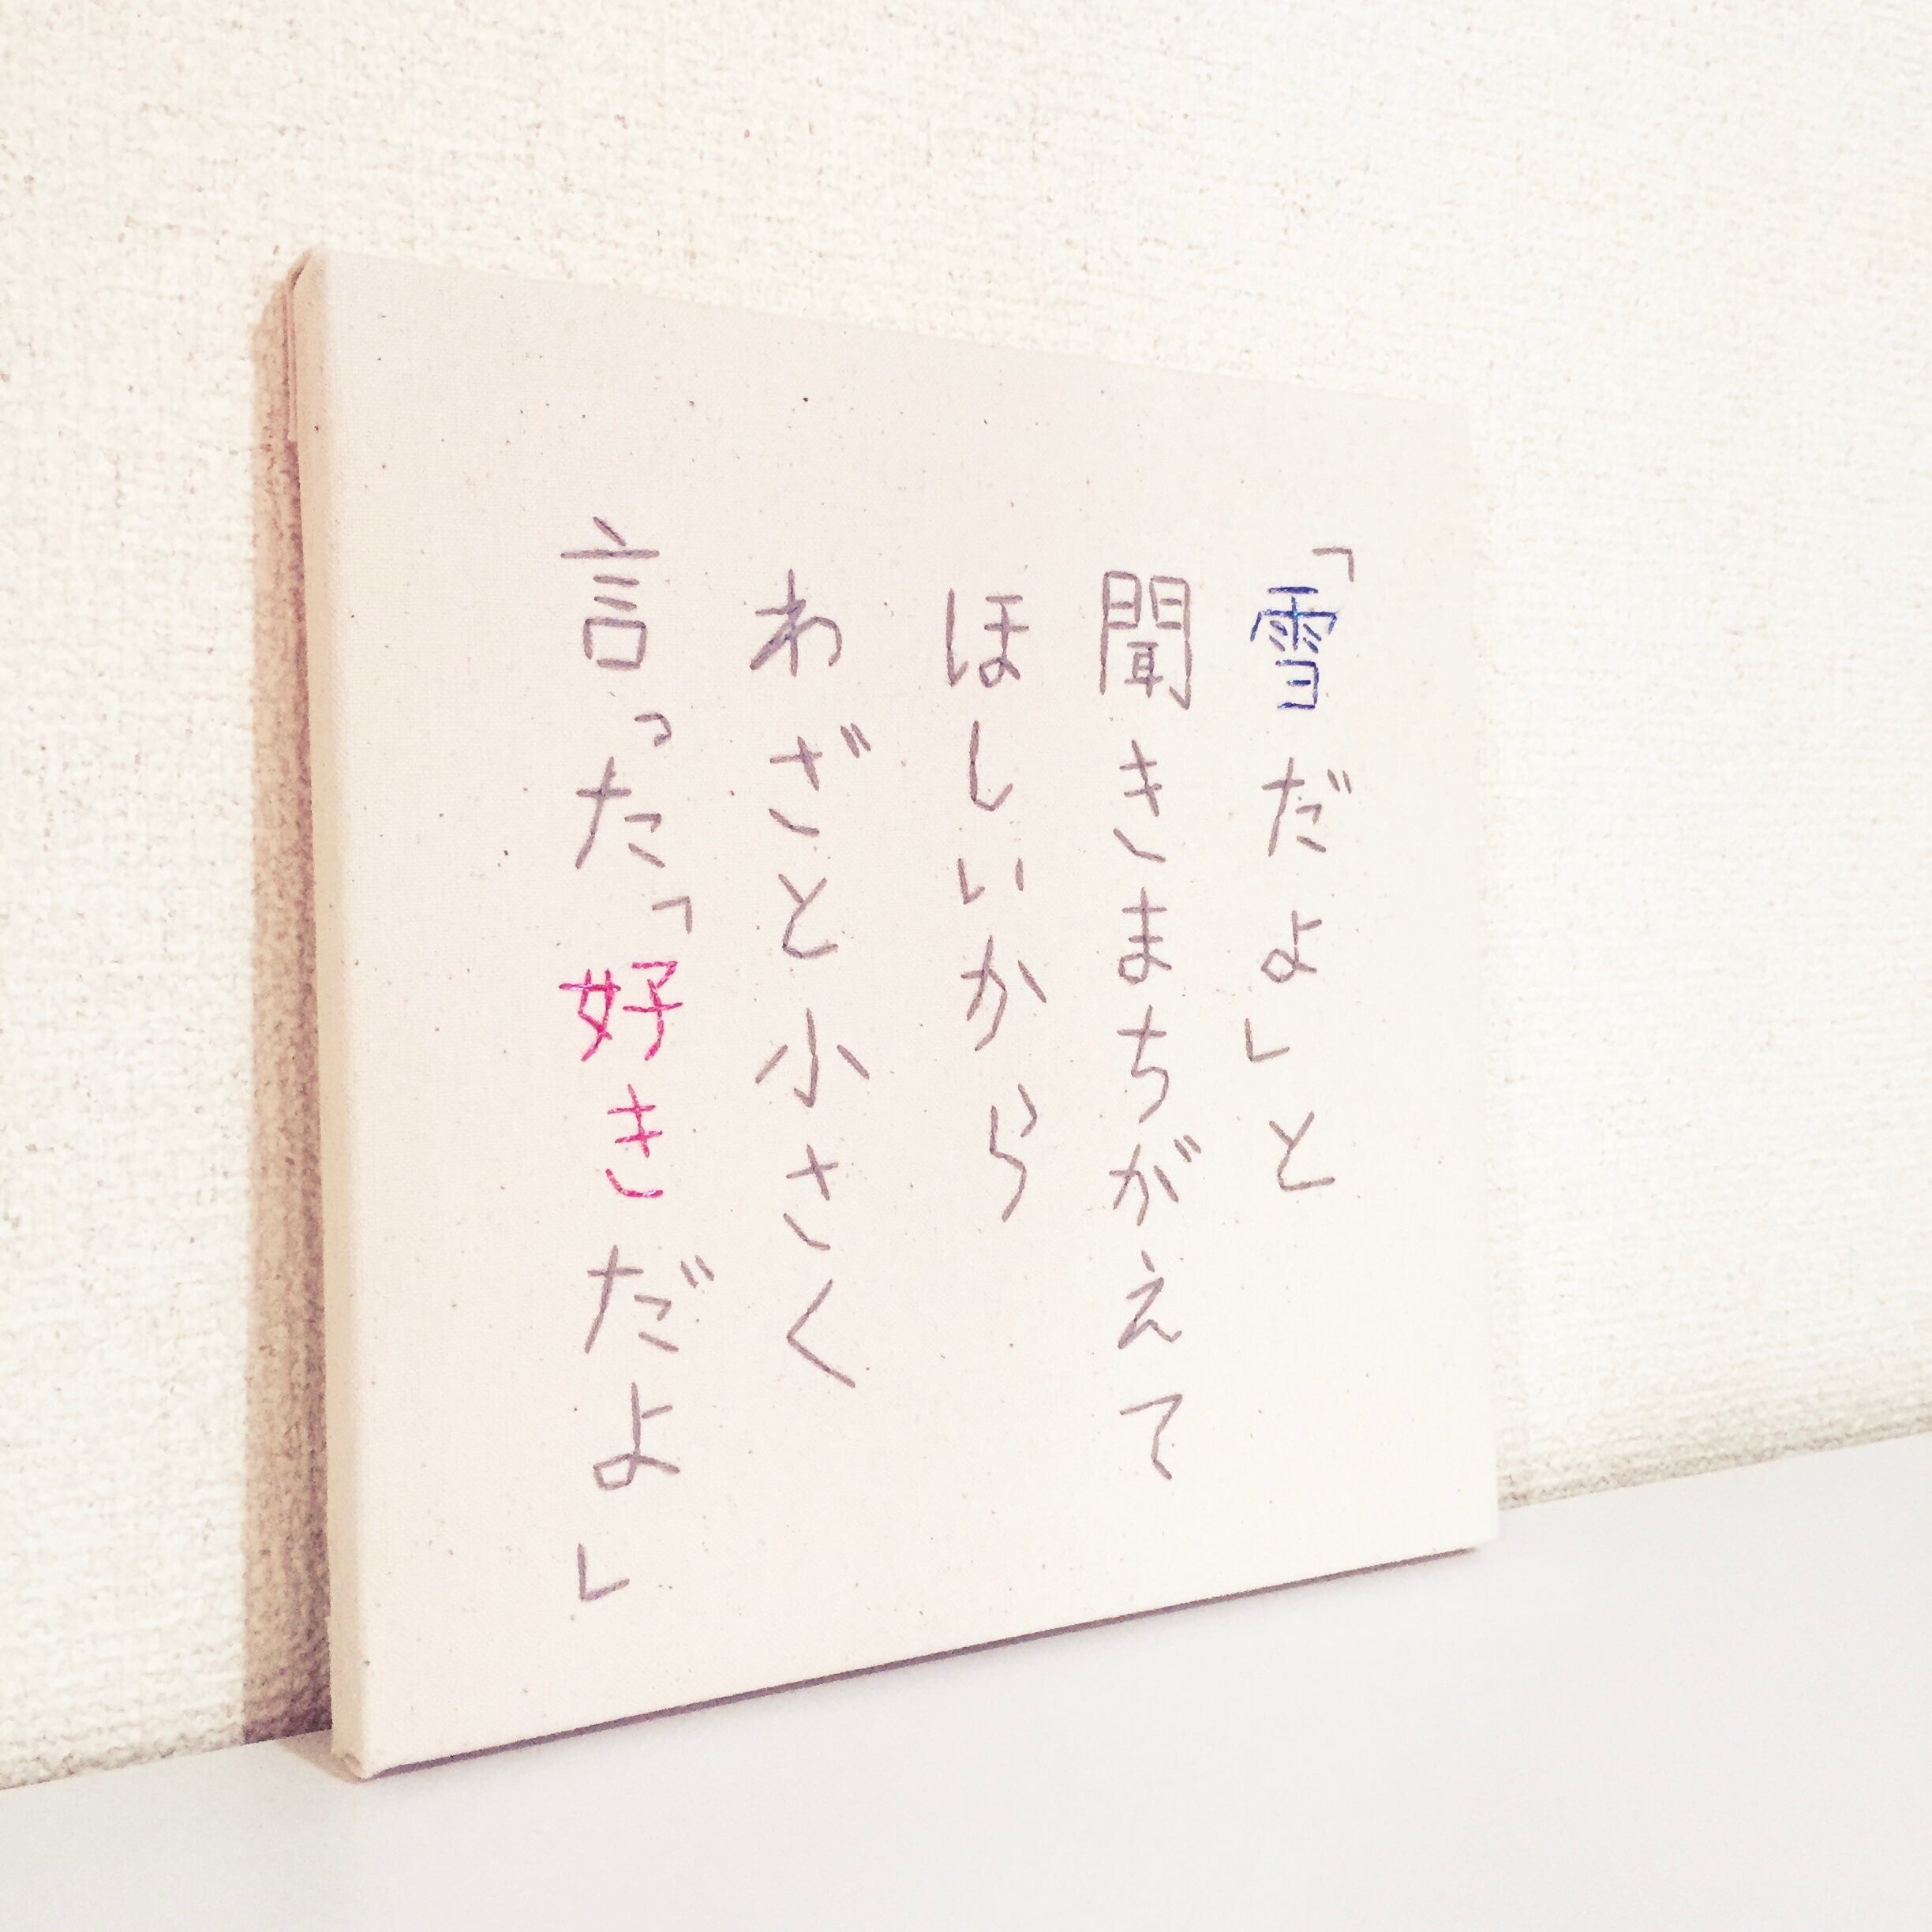 「雪だよ」と
聞きまちがえて
ほしいから
わざと小さく
言った「好きだよ」